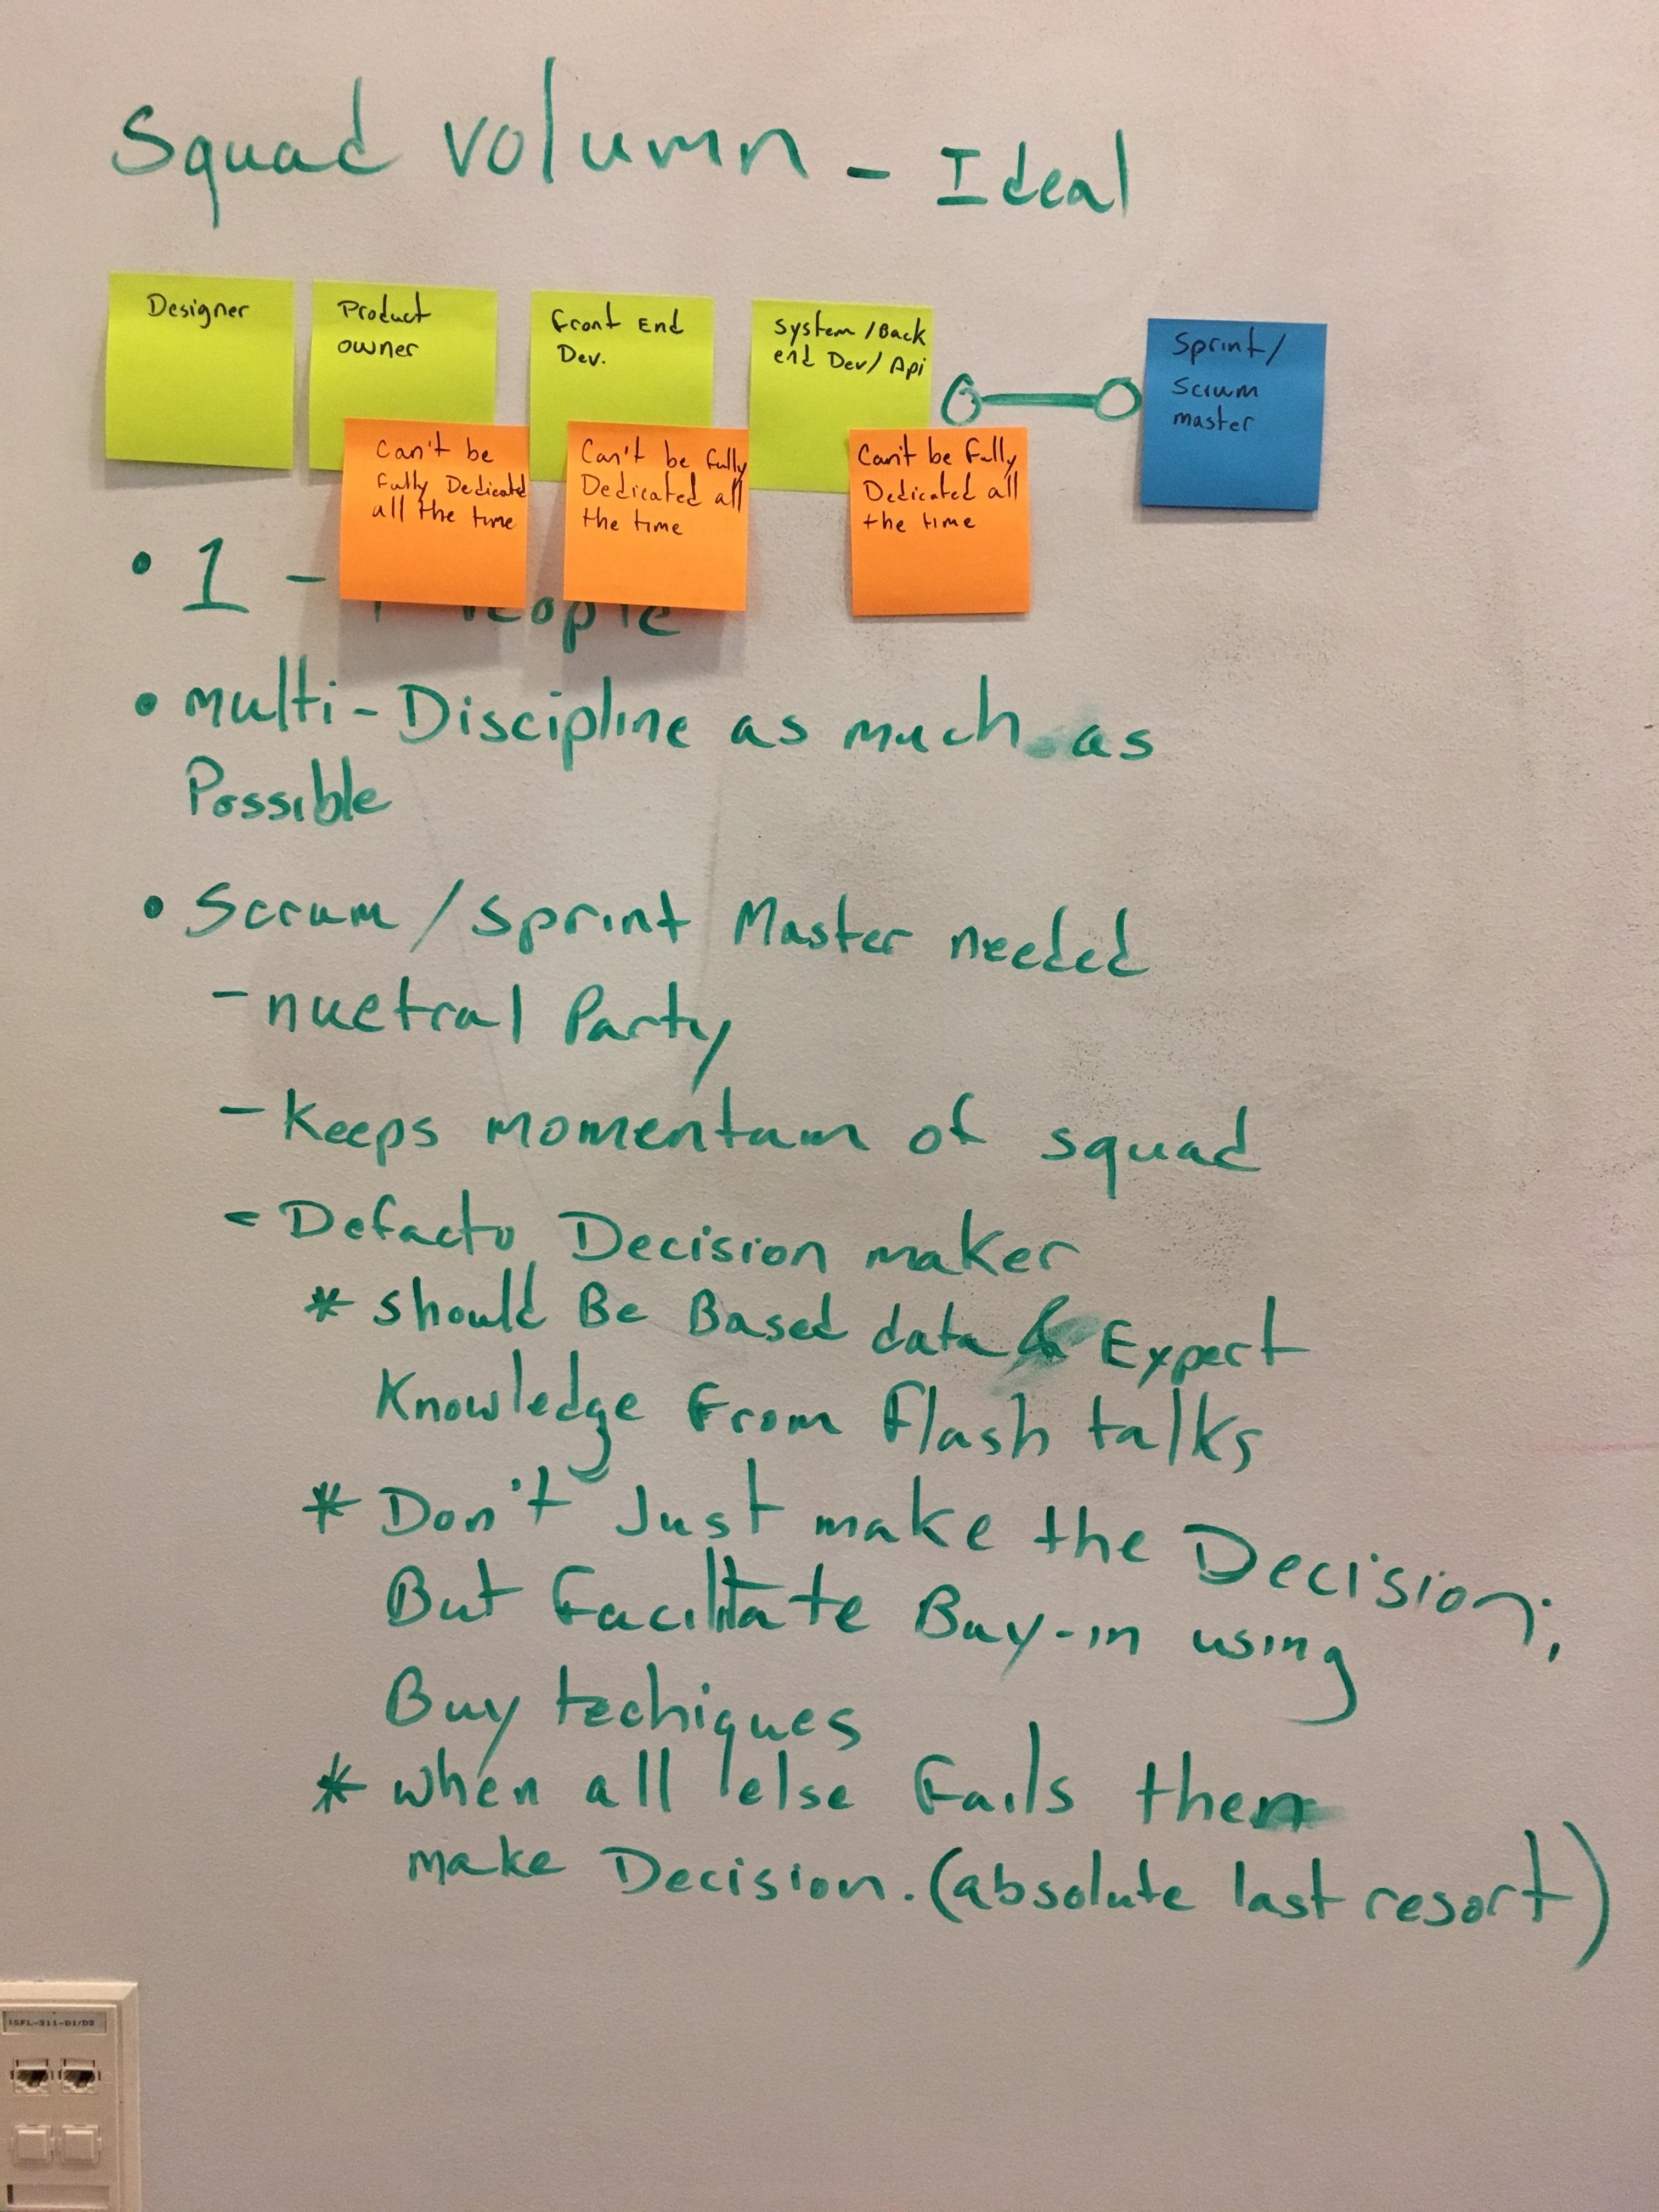 Squad volumn - Ideal
Designer
Product
owner
Front End
Dev.
System/Back
end Dev/Api
Sprint/
Scrum
master
Can't be
Fully Dedicated
all the time
Can't be fully
Dedicated all
the time
Can't be Fully
Dedicated all
the time
• 1 - People
• multi-Discipline as much as
Possible
• Scrum / Sprint Master needed
- nuetral Party
- Keeps momentum of squad
- Defacto Decision maker
* should Be Based data & Expert
Knowledge From Flash talks
* Don't Just make the Decision;
But Facilitate Buy-in using
Buy techiques
* when all else Fails then
make Decision. (absolute last resort)
ISFL-311-D1/D2